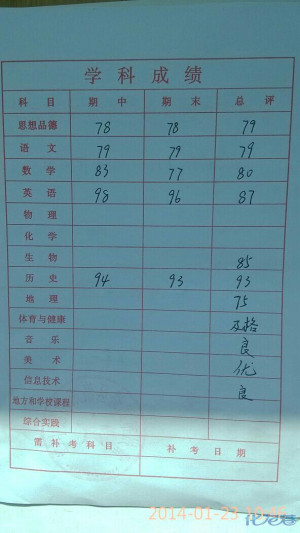 学科成绩
科目 期中 期末 总评
思想品德 78 78 79
语文 79 79 79
数学 83 77 80
英语 98 96 87
物理
化学
生物 85
历史 94 93 93
地理 75
体育与健康 及格
音乐 良
美术 优
信息技术 良
地方和学校课程
综合实践
需补考科目 补考日期